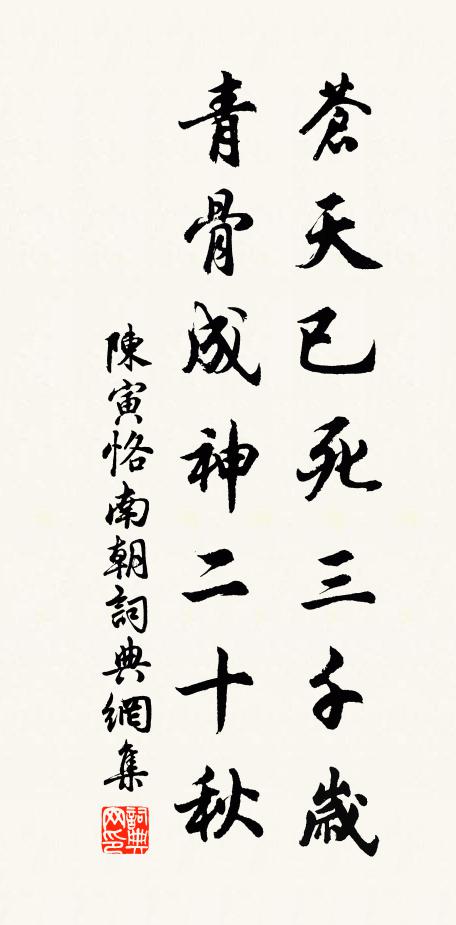 蒼天已死三千歲
青骨成神二十秋
陳寅恪南朝詞典網集
詞典网印